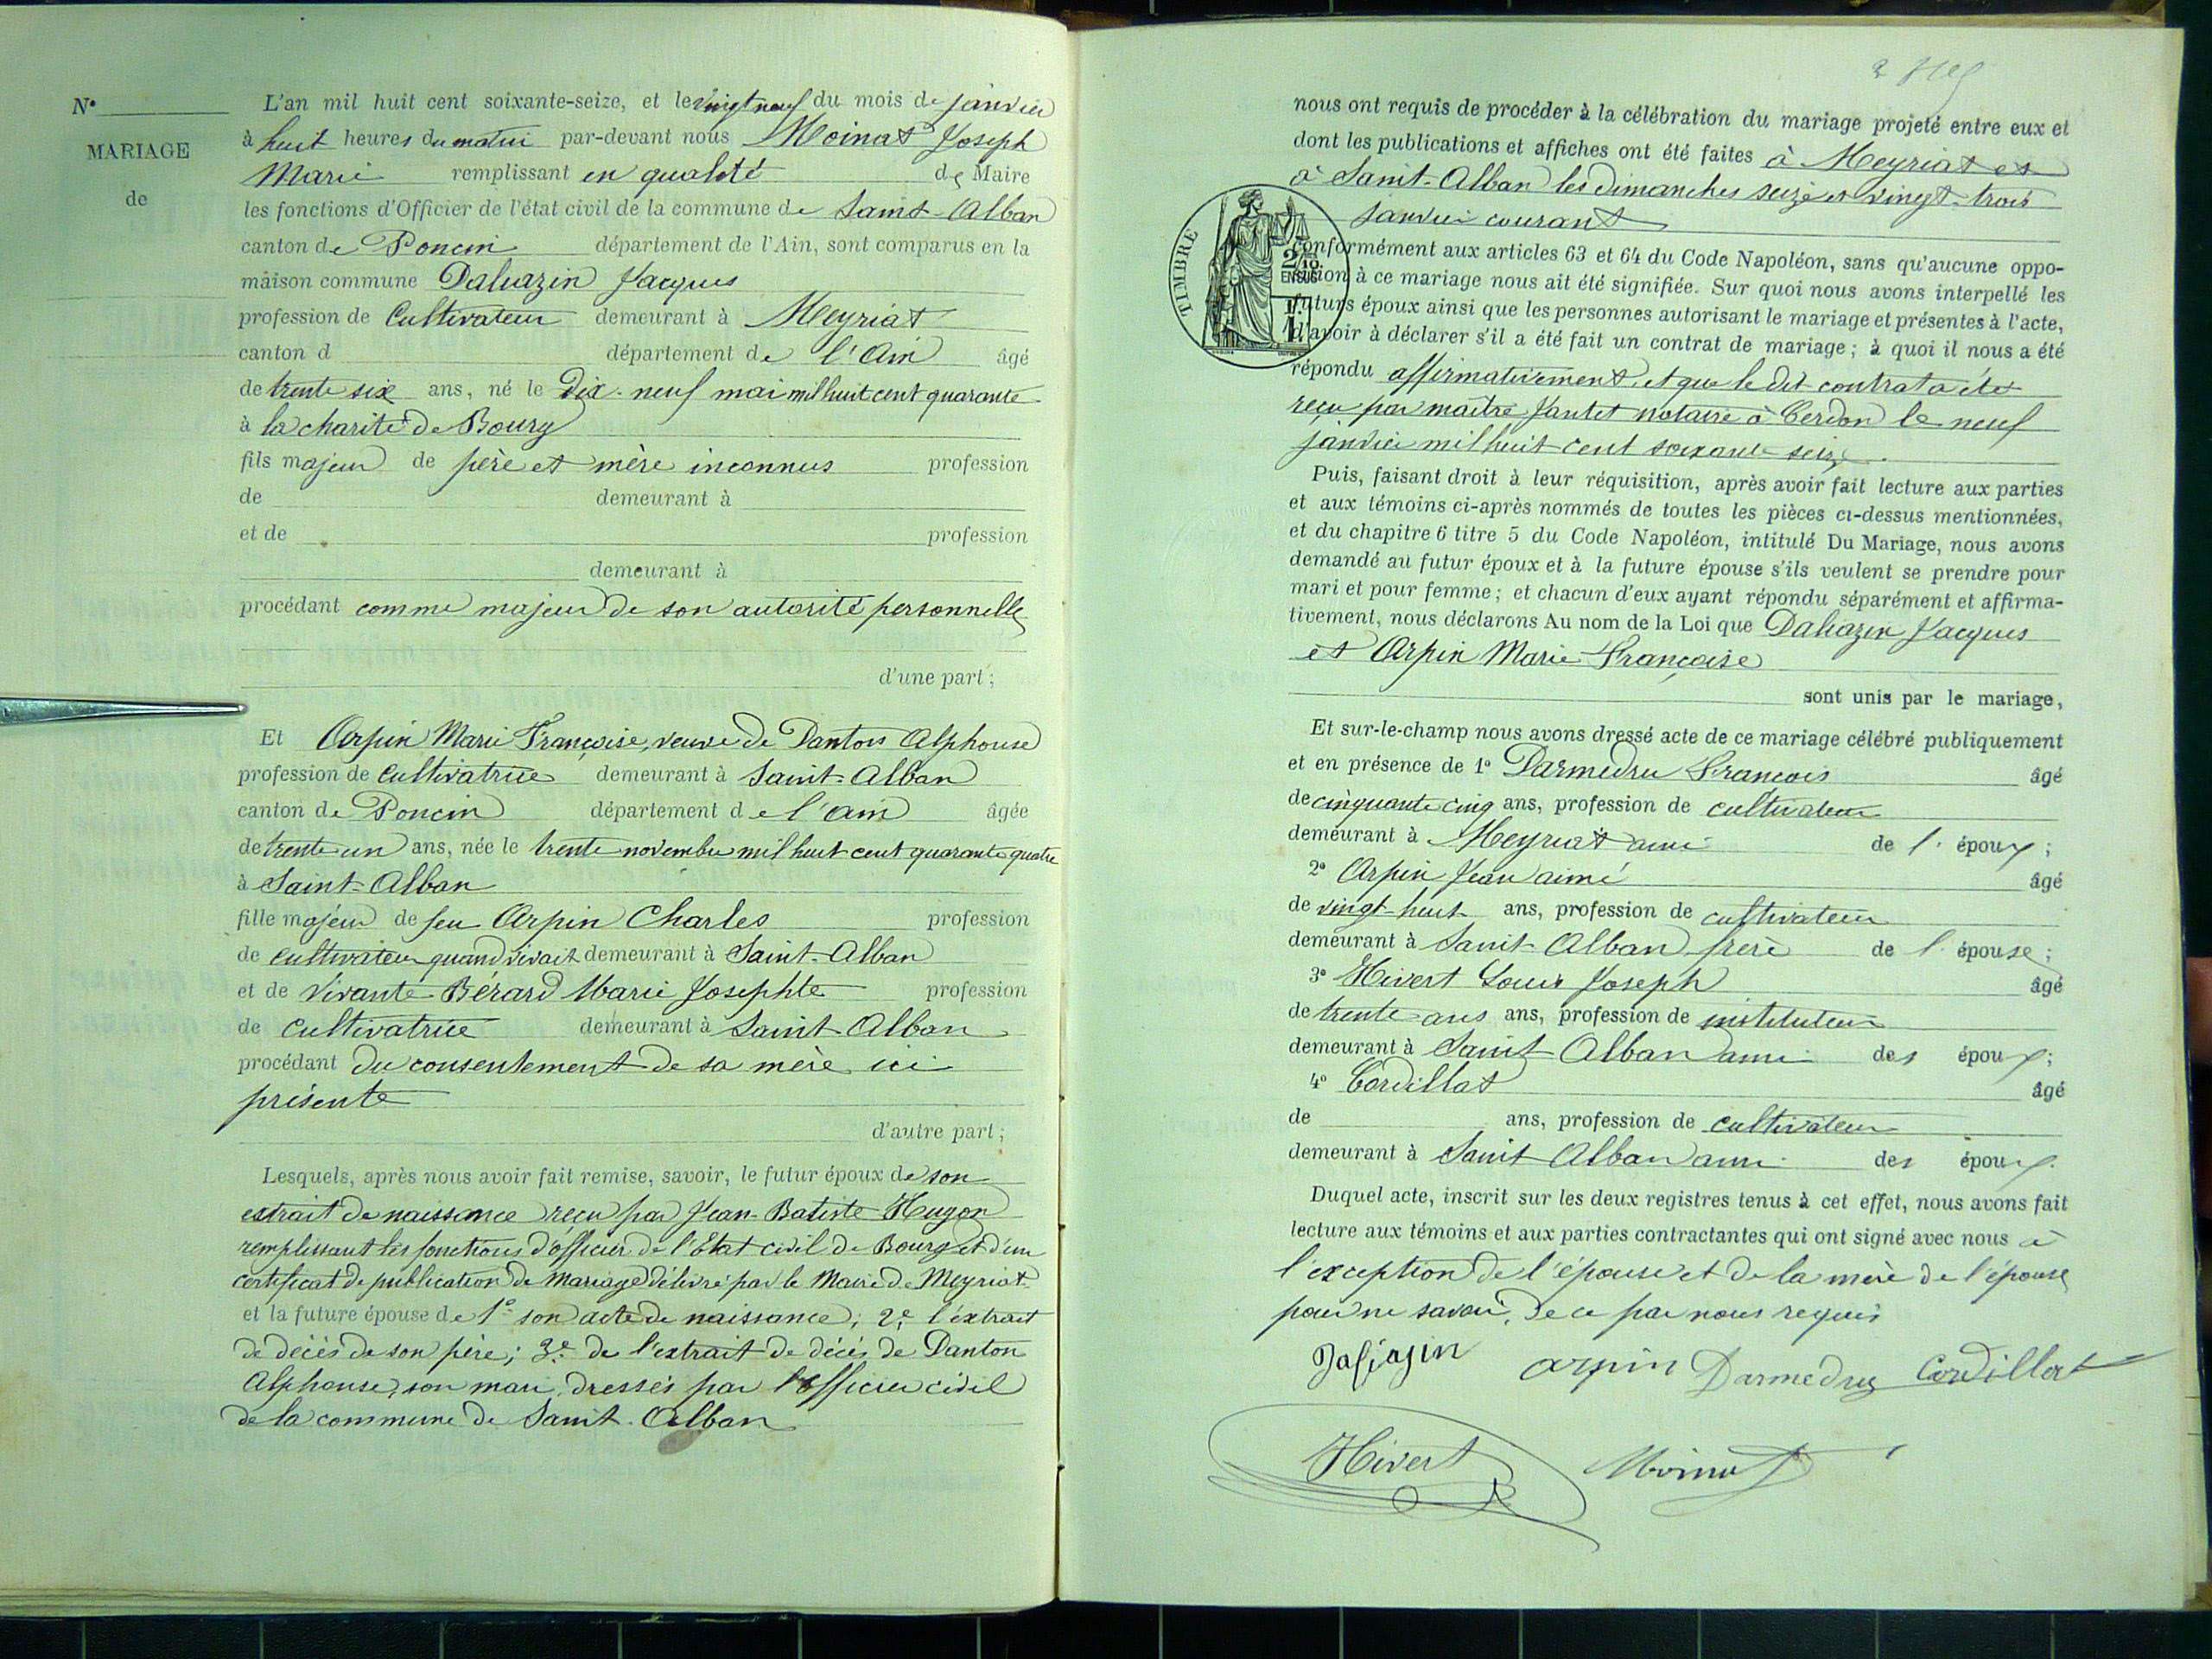 N°
MARIAGE
de
L'an mil huit cent soixante-seize, et le vingt neuf du mois de janvier
à huit heures du matin par-devant nous Moinat Joseph
Marie remplissant en qualité de Maire
les fonctions d'Officier de l'état civil de la commune de Saint-Alban
canton de Poncin département de l'Ain, sont comparus en la
maison commune Daliazin Jacques
profession de Cultivateur demeurant à Meyriat
canton d département de l'Ain âgé
de trente six ans, né le Dix-neuf mai mil huit cent quarante
à la charité de Bourg
fils majeur de père et mère inconnus profession
de demeurant à
et de profession
demeurant à
procédant comme majeur de son autorité personnelle
d'une part;
Et Arpin Marie Françoise, veuve de Danton Alphonse
profession de cultivatrice demeurant à Saint-Alban
canton de Poncin département de l'ain âgée
de trente un ans, née le trente novembre mil huit cent quarante quatre
à Saint-Alban
fille majeur de feu Arpin Charles profession
de cultivateur quand vivait demeurant à Saint-Alban
et de vivante Bérard Marie Josephte profession
de cultivatrice demeurant à Saint-Alban
procédant du consentement de sa mère ici
présente
d'autre part;
Lesquels, après nous avoir fait remise, savoir, le futur époux de son
extrait de naissance reçu par Jean-Batiste Hugon
remplissant les fonctions d'officier de l'Etat civil de Bourg et d'un
certificat de publication de mariage délivré par le Maire de Meyriat
et la future épouse de 1° son acte de naissance; 2° l'extrait
de décès de son père; 3° de l'extrait de décès de Danton
Alphonse, son mari, dressés par l'officier civil
de la commune de Saint-Alban
nous ont requis de procéder à la célébration du mariage projeté entre eux et
dont les publications et affiches ont été faites à Meyriat et
à Saint-Alban les dimanches seize et vingt-trois
janvier courant
TIMBRE
2/10.
EN SUS
conformément aux articles 63 et 64 du Code Napoléon, sans qu'aucune oppo-
sition à ce mariage nous ait été signifiée. Sur quoi nous avons interpellé les
futurs époux ainsi que les personnes autorisant le mariage et présentes à l'acte,
d'avoir à déclarer s'il a été fait un contrat de mariage; à quoi il nous a été
répondu affirmativement, et que le dit contrat a été
reçu par maître Jantet notaire à Cerdon le neuf
janvier mil huit cent soixante seize.
Puis, faisant droit à leur réquisition, après avoir fait lecture aux parties
et aux témoins ci-après nommés de toutes les pièces ci-dessus mentionnées,
et du chapitre 6 titre 5 du Code Napoléon, intitulé Du Mariage, nous avons
demandé au futur époux et à la future épouse s'ils veulent se prendre pour
mari et pour femme; et chacun d'eux ayant répondu séparément et affirma-
tivement, nous déclarons Au nom de la Loi que Daliazin Jacques
et Arpin Marie Françoise
sont unis par le mariage,
Et sur-le-champ nous avons dressé acte de ce mariage célébré publiquement
et en présence de 1° Darmedru François âgé
de cinquante cinq ans, profession de cultivateur
demeurant à Meyriat ami de l' époux;
2° Arpin Jean aimé âgé
de vingt-huit ans, profession de cultivateur
demeurant à Saint-Alban frère de l' épouse;
3° Hivert Louis Joseph âgé
de trente ans ans, profession de instituteur
demeurant à Saint-Alban ami des époux;
4° Cordillat âgé
de ans, profession de cultivateur
demeurant à Saint Alban ami des époux.
Duquel acte, inscrit sur les deux registres tenus à cet effet, nous avons fait
lecture aux témoins et aux parties contractantes qui ont signé avec nous à
l'exception de l'épouse et de la mère de l'épouse
pour ne savoir, de ce par nous requis
arpin Darmedru Cordillat
Hivert Moinat